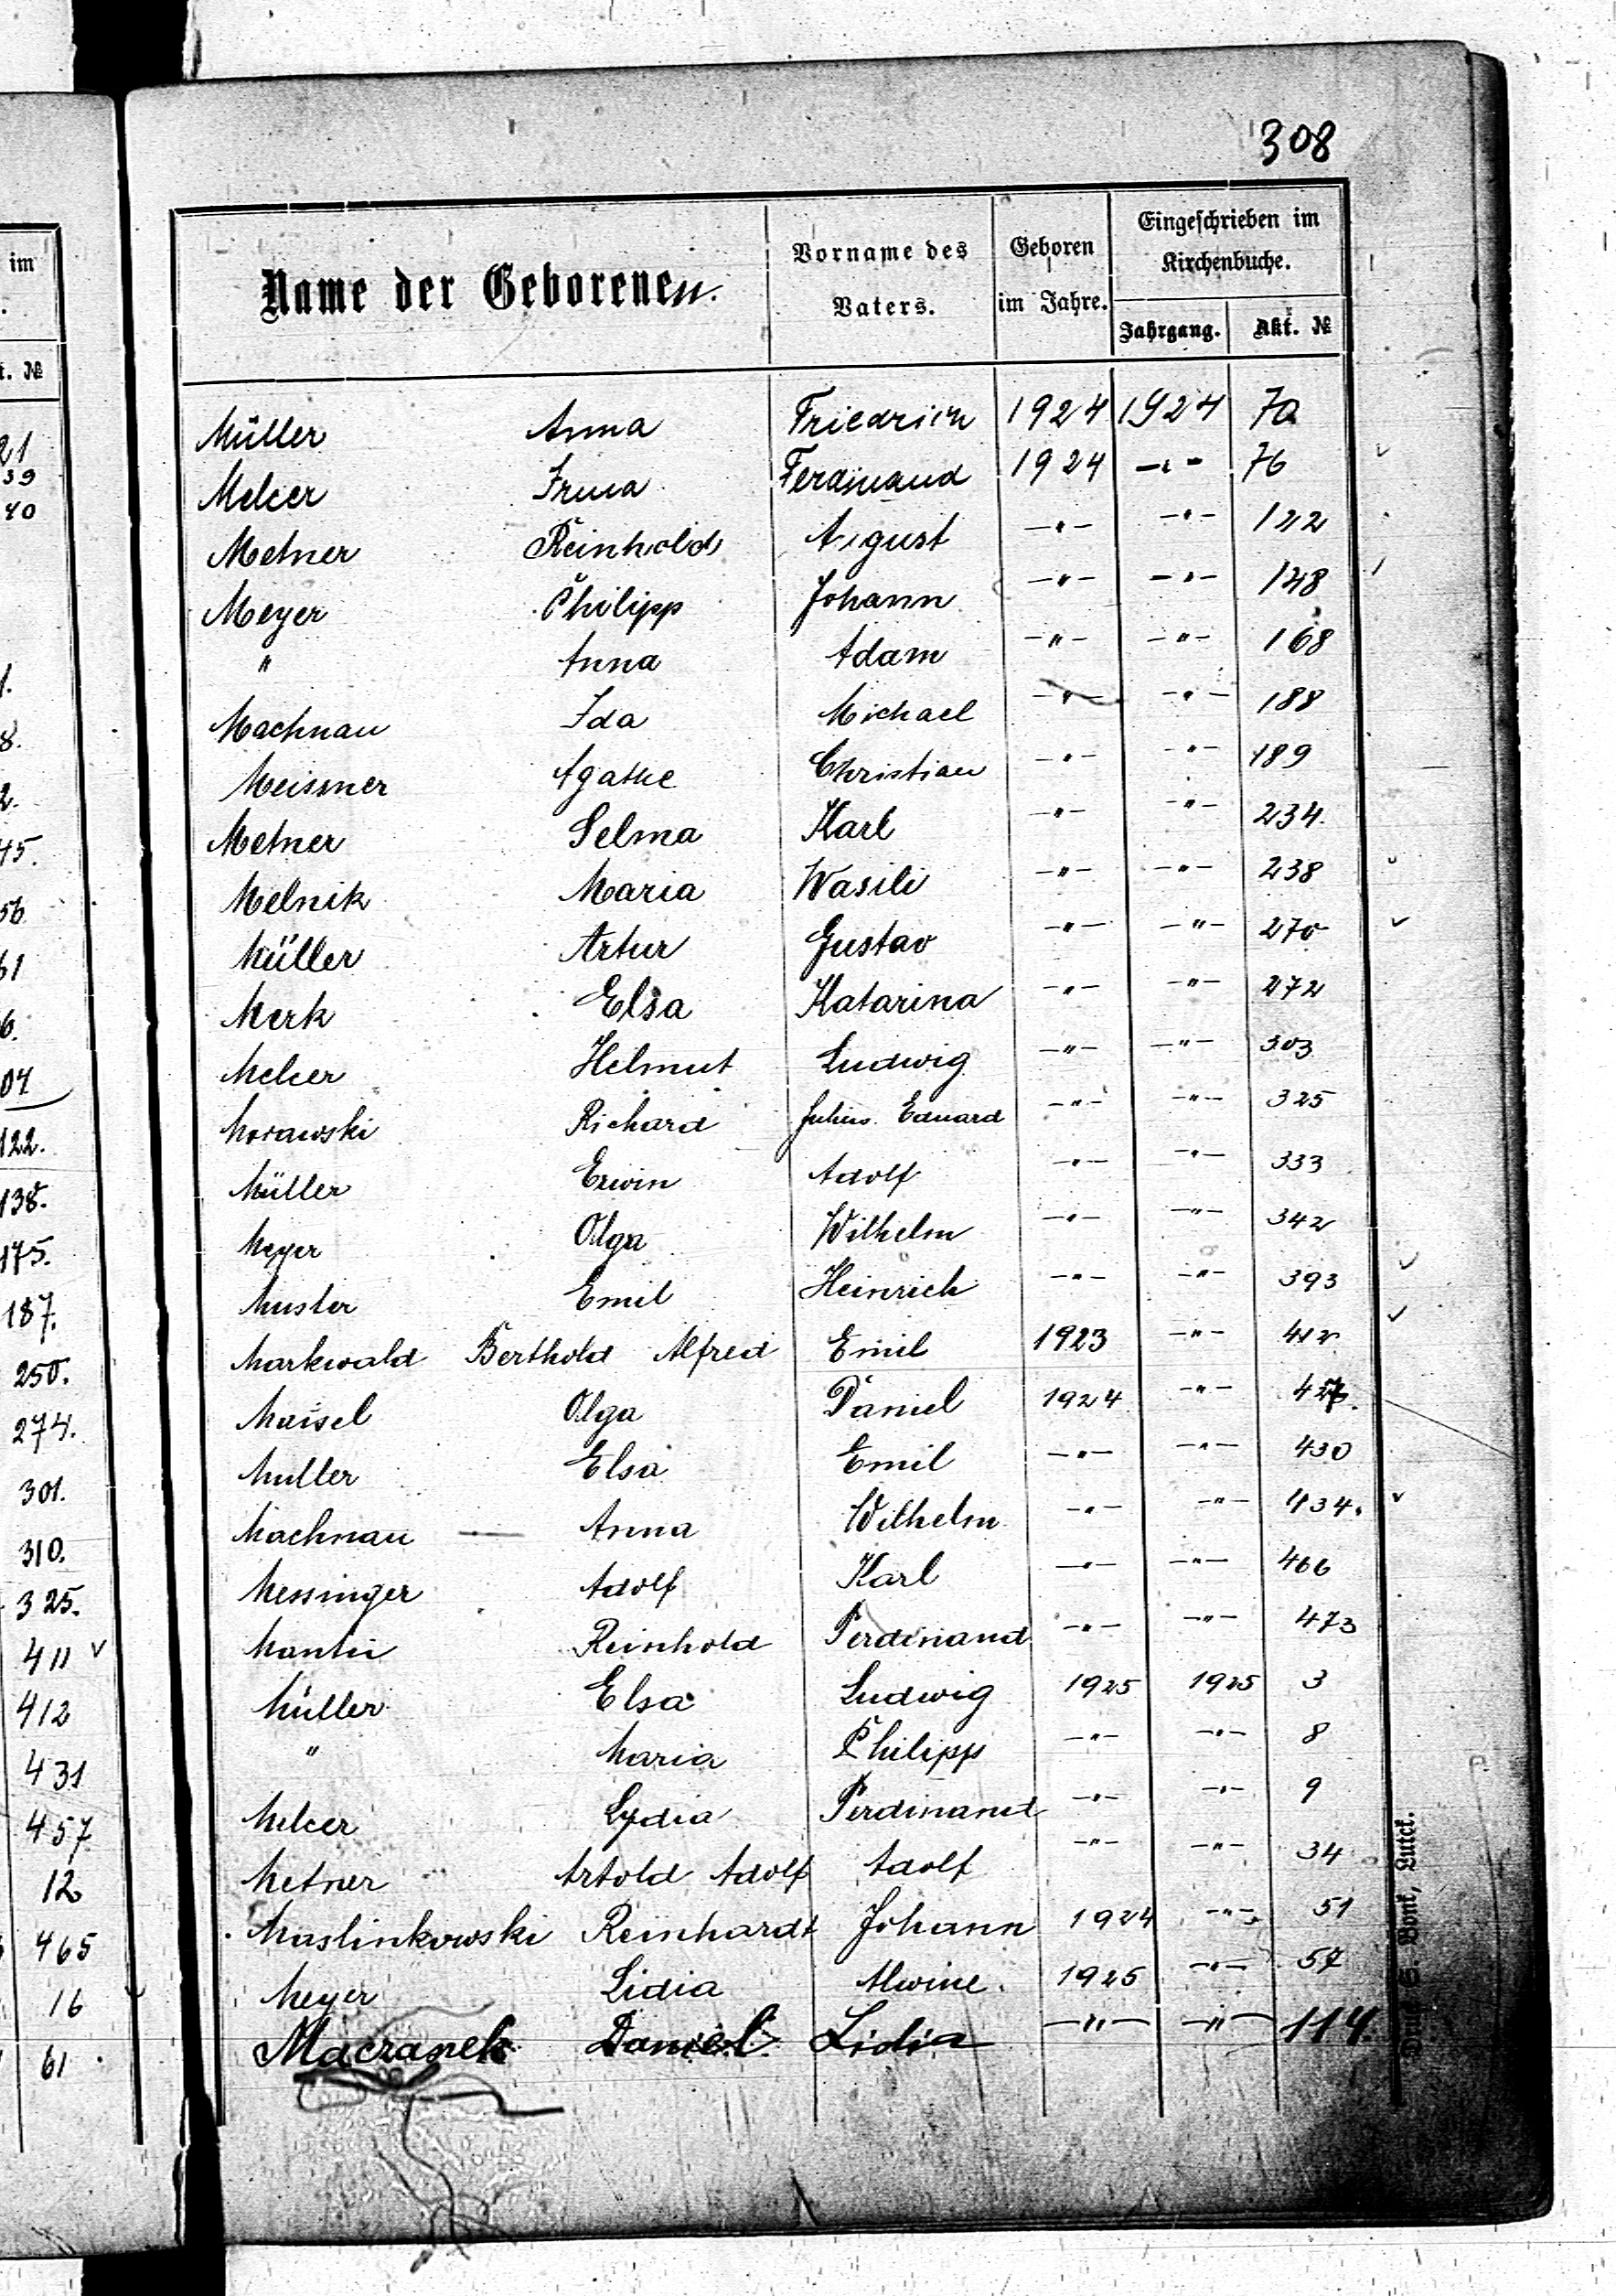 im
.
t. №
21
39
40
1.
8.
2.
45.
56
61
6.
04
122.
138.
175.
187.
250.
274.
301.
310.
325.
411 v
412
431
457
12
465
16
61
308
Name der Geborenen. Vorname des Vaters. Geboren im Jahre. Eingeschrieben im Kirchenbuche.
Jahrgang. Akt. №
Müller Anna Friedrich 1924 1924 70
Melcer Irma Ferdinand 1924 -"- 76
Metner Reinhold August -"- -"- 122
Meyer Philipp Johann -"- -"- 148
" Anna Adam -"- -"- 168
Machnau Ida Michael -"- -"- 188
Meissner Agathe Christian -"- -"- 189
Metner Selma Karl -"- -"- 234.
Melnik Maria Wasili -"- -"- 238
Müller Artur Gustav -"- -"- 270
Merk Elsa Katarina -"- -"- 272
Melcer Helmut Ludwig -"- -"- 303
Morawski Richard Julius Eduard -"- -"- 325
Müller Erwin Adolf -"- -"- 333
Meyer Olga Wilhelm -"- -"- 342
Muster Emil Heinrich -"- -"- 393
Markwald Berthold Alfred Emil 1923 -"- 412
Maisel Olga Daniel 1924 -"- 427.
Muller Elsa Emil -"- -"- 430
Machnau — Anna Wilhelm -"- -"- 434.
Messinger Adolf Karl -"- -"- 466
Mantei Reinhold Ferdinand -"- -"- 473
Müller Elsa Ludwig 1925 1925 3
" Maria Philipp -"- -"- 8
Melcer Lydia Ferdinand -"- -"- 9
Metner Artold Adolf Adolf -"- -"- 34
Maslinkowski Reinhardt Johann 1924 -"- 51
Meyer Lidia Alwine. 1925 -"- 57
Maczanek Daniel Lidia -"- -"- 114.
Druck S. Bont, Lutck.